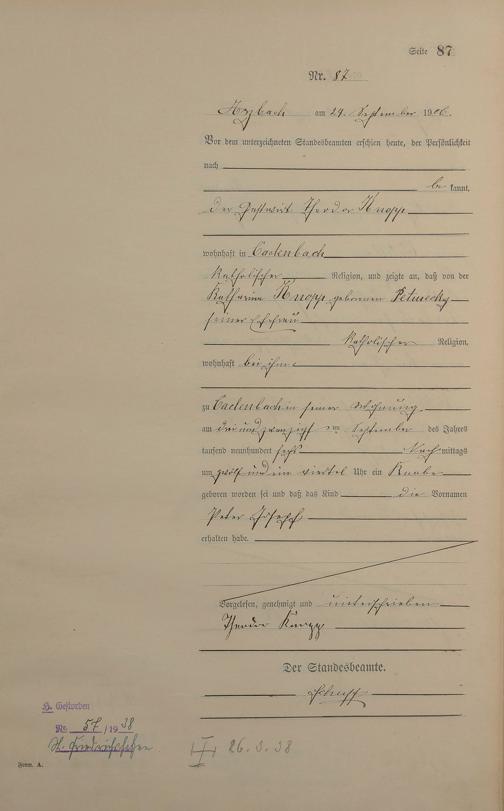 Seite 87
Nr. 87
Arzbach am 24. September 1906.
Vor dem unterzeichneten Standesbeamten erschien heute, der Persönlichkeit
nach
be kannt,
der Gastwirt Theodor Knopp
wohnhaft in Cadenbach
katholischer Religion, und zeigte an, daß von der
Katharina Knopp geborenen
seiner Ehefrau
katholischer Religion,
wohnhaft bei ihm
zu Cadenbach in seiner Wohnung
am drei und zwanzigsten September des Jahres
tausend neunhundert sechs Nachmittags
um zwölf und ein viertel Uhr ein Knabe
geboren worden sei und daß das Kind die Vornamen
Peter Joseph
erhalten habe.
Vorgelesen, genehmigt und unterschrieben
Theodor Knopp
Der Standesbeamte.
H. Gestorben
No 57/1938
St. Friedrichssegen
26.3.38
Form. A.